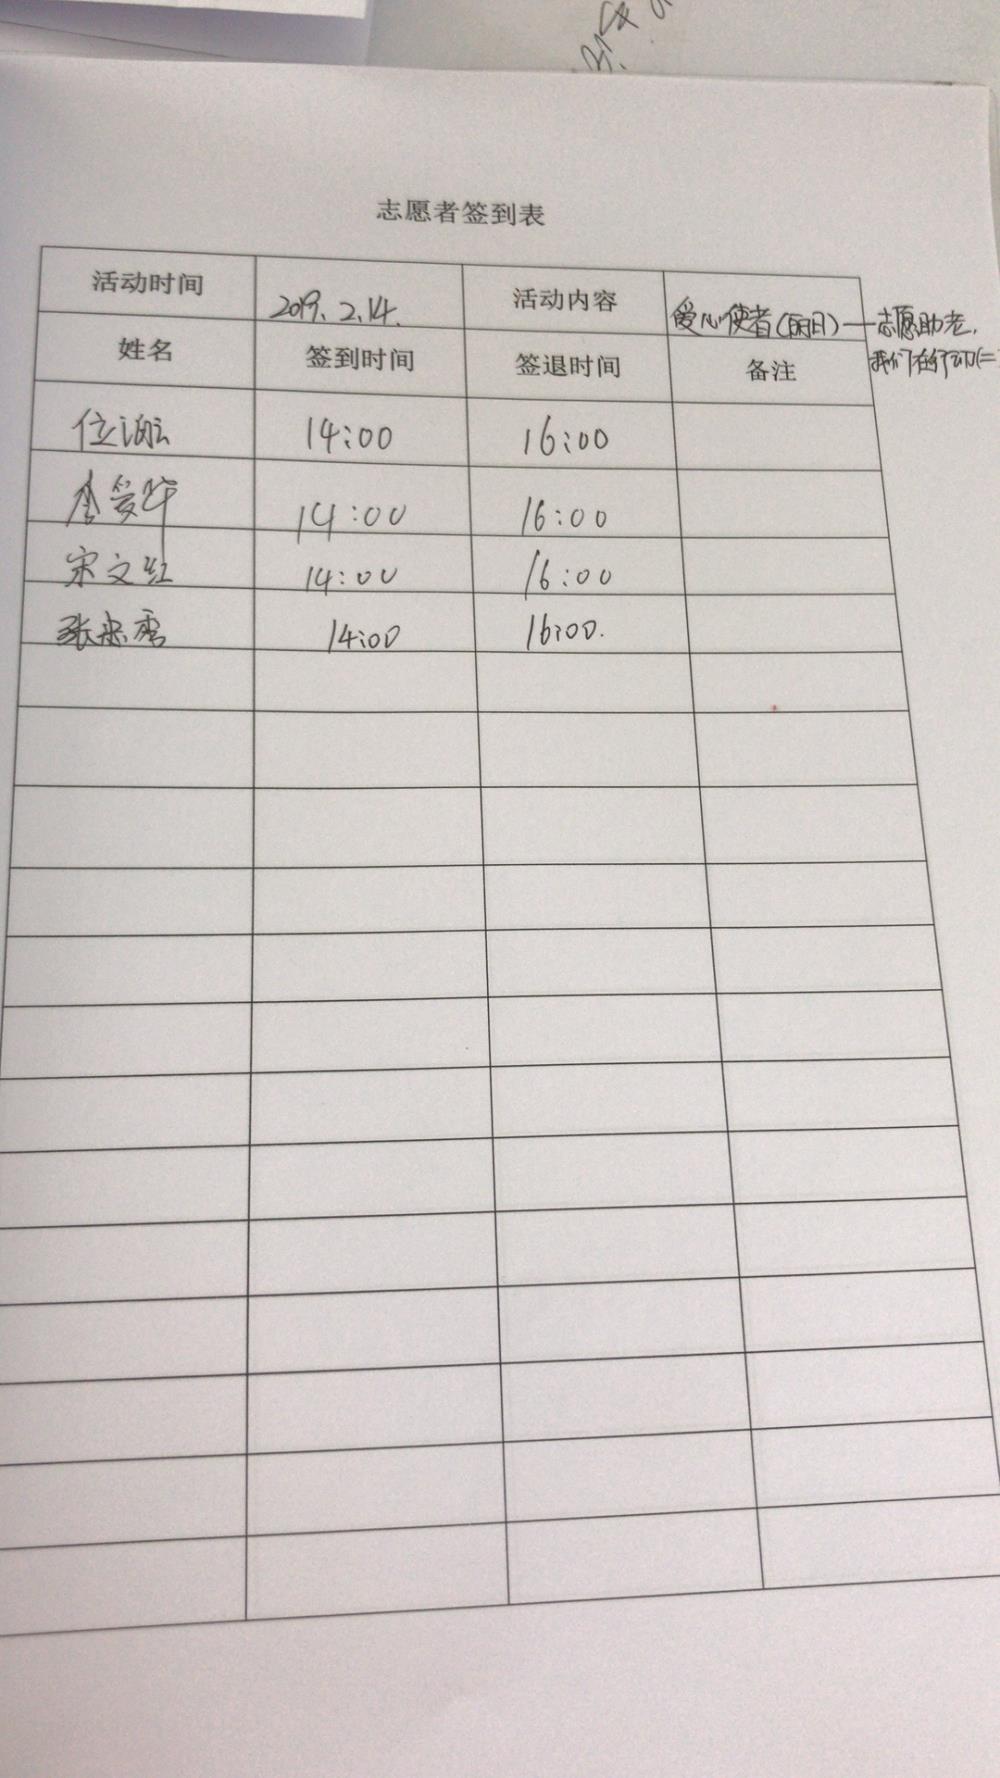 志愿者签到表
活动时间 2019.2.14. 活动内容 爱心使者(丽日)—志愿助老,
我们在行动(二
姓名 签到时间 签退时间 备注
位 14:00 16:00
爱华 14:00 16:00
宋文红 14:00 16:00
张忠秀 14:00 16:00.